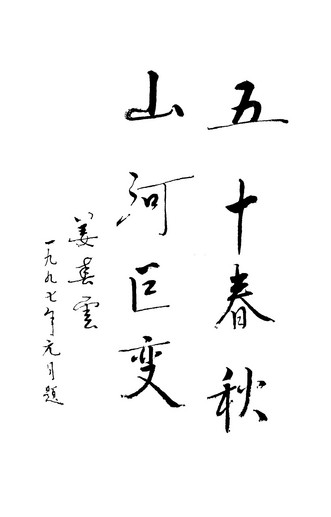 五十春秋
山河巨变
姜春雲
一九九七年元月題